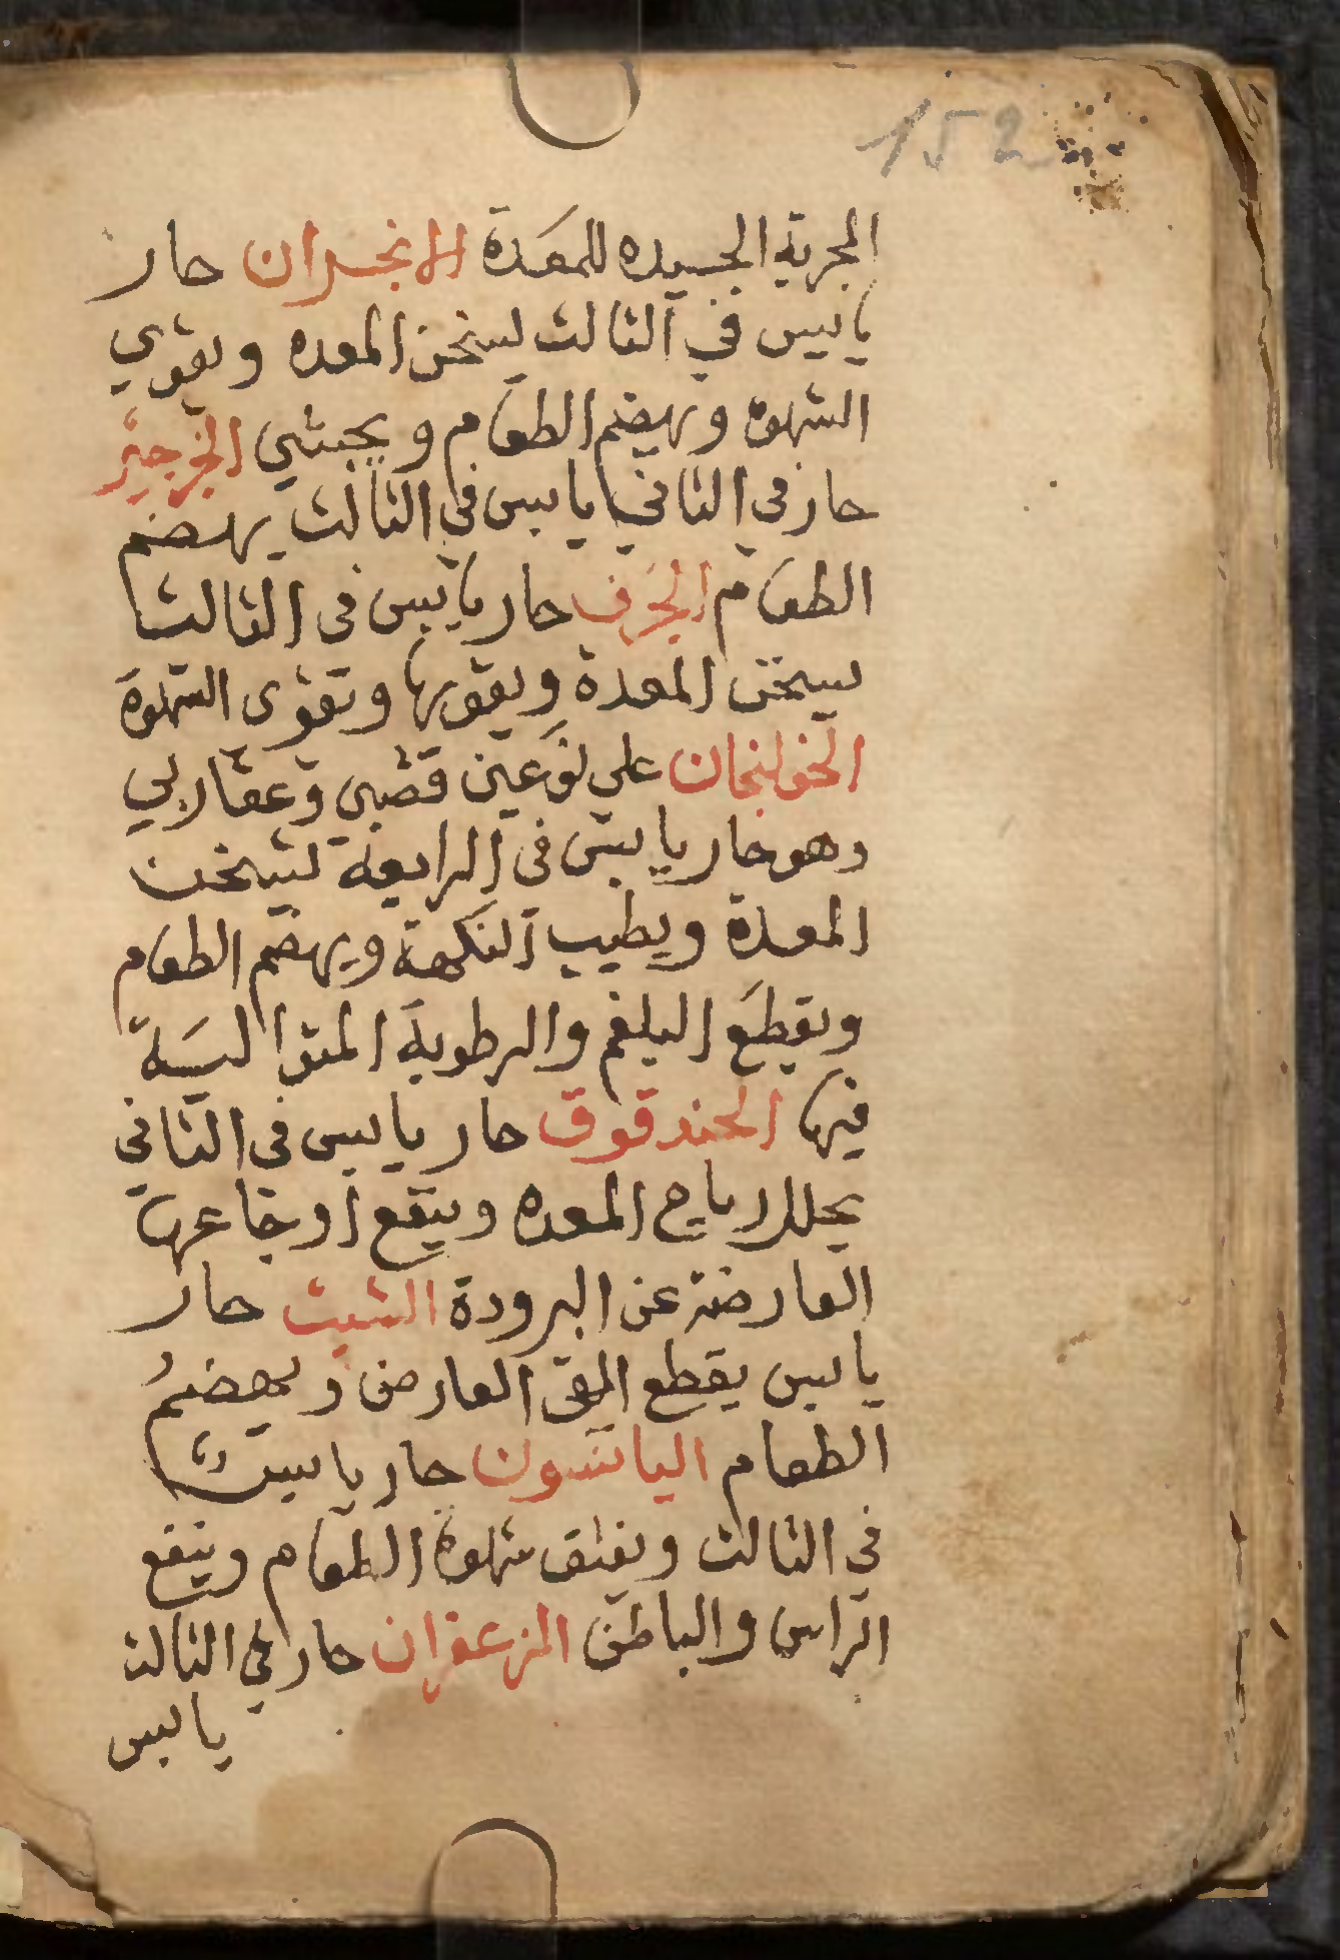 152
المجربة الجيده للمعدة الانجدان حار
يابس في الثالث يسخن المعده ويقوي
الشهوة ويهضم الطعام ويجشي الجرجير
حار في الثاني يابس في الثالث يهضم
الطعام الحرف حار يابس في الثالث
يسخن المعدة ويقويها وتقوى الشهوة
الخولنجان على نوعين قصبي وعقاربي
وهو حار يابس في الرابعة يسخن
المعدة ويطيب النكهة ويهضم الطعام
ويقطع البلغم والرطوبة المتوالية
فيها الحندقوق حار يابس في الثاني
يحلل ارياح المعده وينفع اوجاعها
العارضة عن البرودة الشبت حار
يابس يقطع القي العارض ويهضم
الطعام اليانسون حار يابس
في الثالث ويفتق شهوة الطعام وينفع
الراس والباطن الزعفران حار في الثالث
يابس